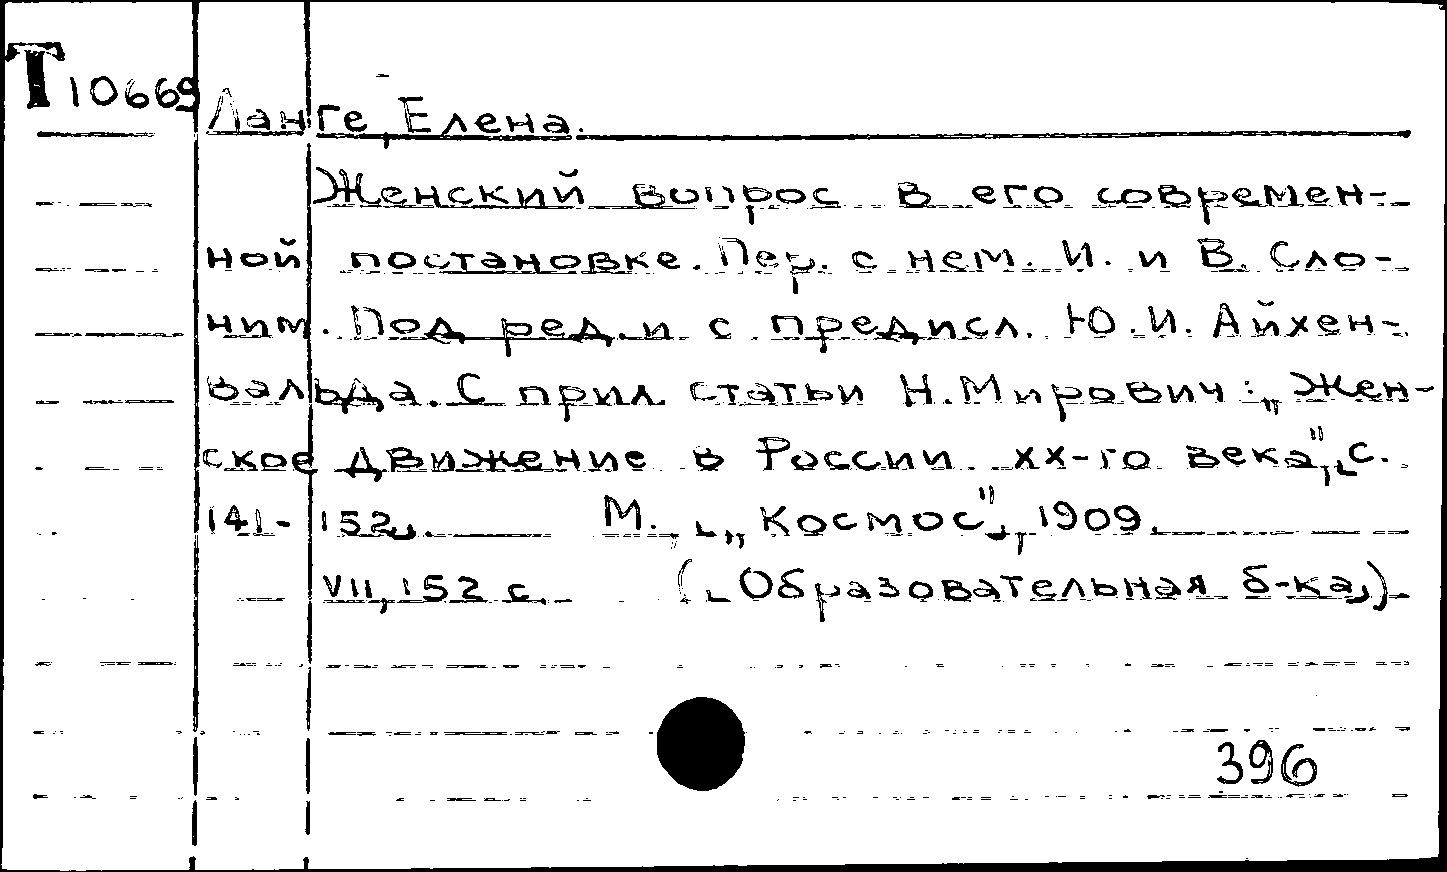 Т10669
Ланге, Елена.
Женский вопрос в его современ-
ной постановке. Пер. с нем. И. и В. Сло-
ним. Под ред. и с предисл. Ю.И. Айхен-
вальда. С прил. статьи Н.Мирович: „Жен-
ское движение в России XX-го века", с.
141-152. М., „Космос", 1909.
VII, 152 с. („Образовательная б-ка„).
396